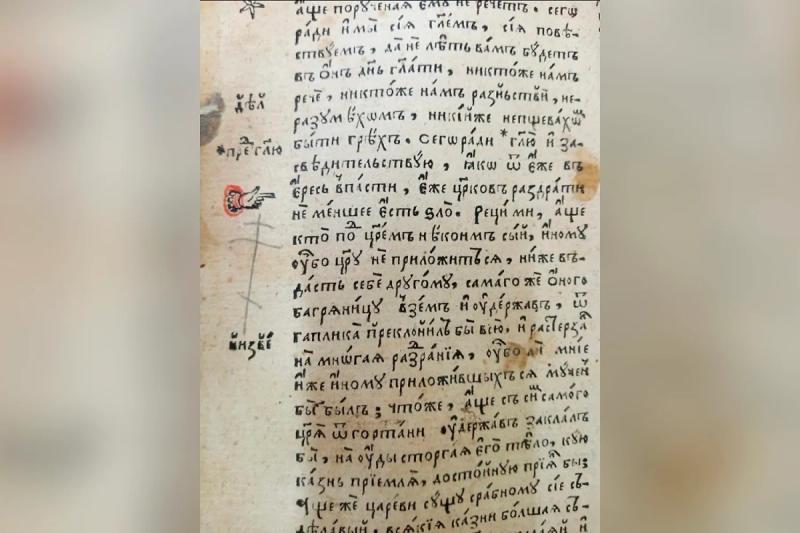 а҆́ще порꙋченая ємꙋ̀ не рече́тъ. сегѡ̀
ра́ди и҆ мы̀ сїѧ̑ гл҃емъ, сїѧ̑ повѣ-
ствꙋемъ, да̀ не лѣ́ть ва́мъ бꙋдетъ
въ ѻ҆́нъ дн҃ь гл҃ати, никто́же на́мъ
дѣѧ҃
речѐ, никто́же на́мъ разнь́стви̑, не-
разꙋмѣ́хомъ, никі́йже непщева́хꙋ
бы́ти грѣ́хъ. Сегѡра́ди *гл҃ю и҆ за-
*пред̾ гл҃ю
свѣди́тельствꙋю, ꙗ҆́кѡ ѿ є҆́же въ
є҆́ресь впа́сти, є҆́же цр҃ковь раздра́ти
не ме́ншее є҆́сть ѕло̀. Рецы̀ ми, а҆́ще
кто̀ под̾ цр҃емъ нѣ́коимъ сы́й, и҆́номꙋ
ѹ҆́бо цр҃ꙋ не приложи́тъся, ни́же въ-
да́сть себѐ дрꙋго́мꙋ, сама́го же ѻ҆́ного
багряни́цꙋ взе́мъ и҆ ѹ҆держа́въ, ѿ
га́плика преклони́лъ бы̀ всю̀, и҆ растерза́лъ
на мнѡ́гая раздра́нїѧ, ѹ҆́бо ли̑ мні́е
и҆́же и҆́номꙋ приложи́вшыхъся мꙋче́н
бы̀ бы́лъ; что́же, а҆́ще съ си́м само́го
цр҃ѧ̀ ѿ горта́ни ѹ҆держа́въ закла́лъ
бы̀, на ѹ҆́ды сторга́я є҆го̀ тѣ́ло, кꙋ́ю
ка́знь прїемля, досто́йнꙋю прїѧ́л бы;
А҆́ще же царе́ви сꙋ́щꙋ сра́бномꙋ сїѐ съ-
дѣ́лавый, вся́кїѧ ка́зни бо́лшая съ-